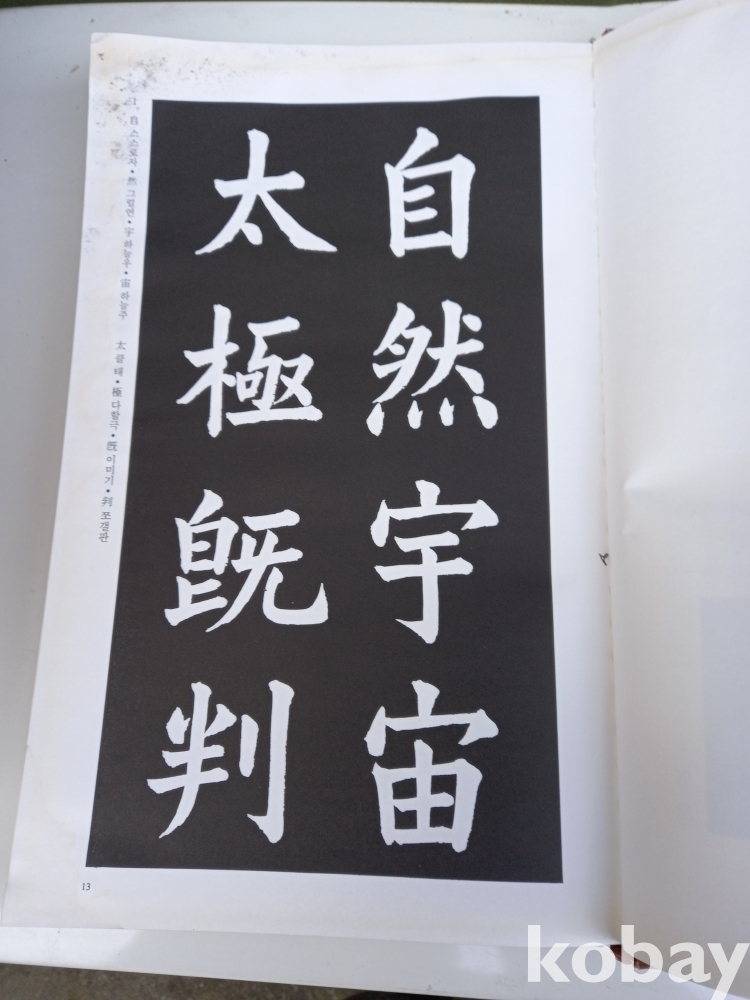 自然宇宙
太極旣判
1 自 스스로자 • 然 그럴연 • 宇 하늘우 • 宙 하늘주 太 클태 • 極 다할극 • 旣 이미기 • 判 쪼갤판
13
kobay